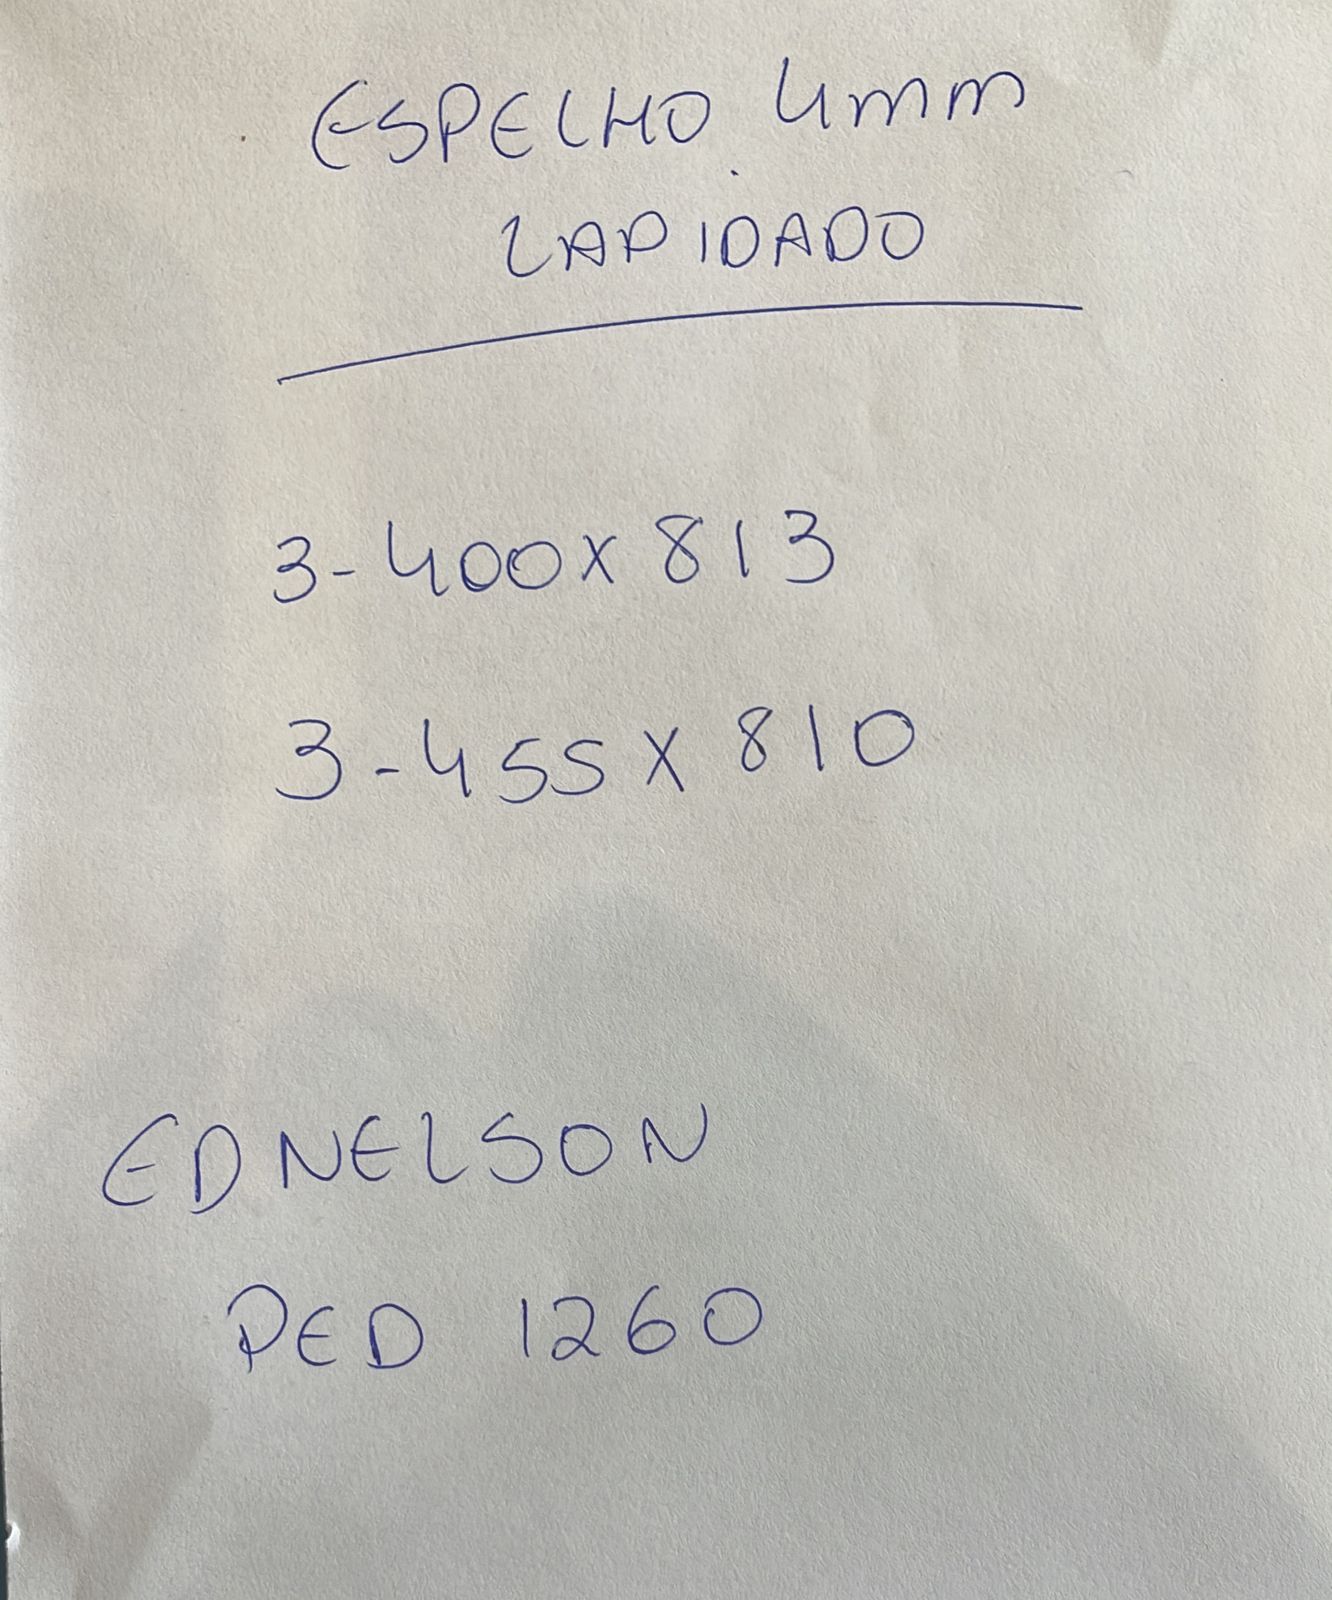 ESPELHO 4mm
LAPIDADO
3-400x813
3-455x810
EDNELSON
PED 1260